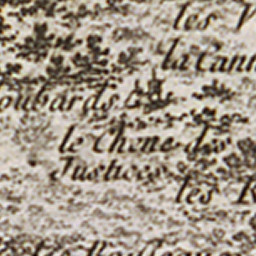 les
la Cann
oubards
le Chene des
Justices
les R